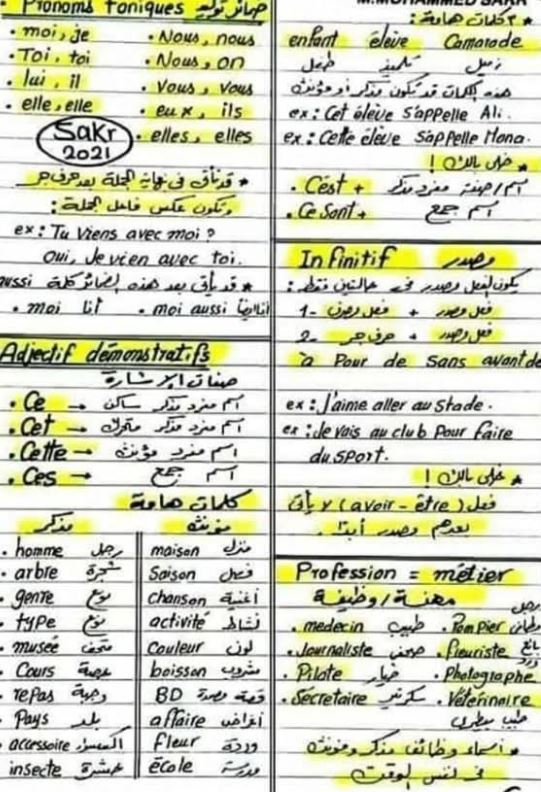 Pronoms toniques ضمائر توكيد
• moi, je • Nous, nous
• Toi, toi • Nous, on
• lui, il • Vous, Vous
• elle, elle • eux, ils
Sakr 2021 • elles, elles
* قد تأتى فى نهاية الجملة بعد حرف جر
وتكون عكس فاعل الجملة :
ex : Tu viens avec moi ?
Oui, Je vien avec toi.
* قد يأتى بعد هذه الضمائر كلمة aussi
• moi أنا • moi aussi أنا أيضا
Adjectif démonstratifs
صفات الإشارة
• Ce → اسم مفرد مذكر ساكن
• Cet → اسم مفرد مذكر متحرك
• Cette → اسم مفرد مؤنث
• Ces → اسم جمع
كلمات هامة
مذكر مؤنث
• homme رجل maison منزل
• arbre شجرة Saison فصل
• genre نوع chanson أغنية
• type نوع activité نشاط
• musée متحف Couleur لون
• Cours حصة boisson مشروب
• repas وجبة BD قصة مصورة
• Pays بلد affaire أغراض
• accessoire اكسسوار Fleur وردة
insecte حشرة école مدرسة
M.MOHAMMED SAKR
* كلمات هامة :
enfant éleve Camarade
طفل تلميذ زميل
هذه الكلمات قد تكون مذكر أو مؤنث
ex : Cet éleve S'appelle Ali.
ex : Cette éleve S'appelle Mona.
* خلى بالك !
• C'est + اسم / صفة مفرد مذكر
• Ce Sont + اسم جمع
Infinitif مصدر
يكون الفعل مصدر فى حالتين فقط :
1- فعل مصرف + فعل مصدر
2- حرف جر + فعل مصدر
à Pour de Sans avant de
ex : J'aime aller au Stade.
ex : Je vais au club Pour faire
du SPort.
* خلى بالك !
فعل (avoir - être) لا يأتى
بعدهم مصدر أبداً .
Profession = métier
مهنة / وظيفة
• medecin طبيب • Pompier رجل مطافى
• Journaliste صحفى • Fleuriste بائع ورد
• Pilote طيار • Photographe
• Secretaire سكرتير • Véterinaire
طبيب بيطرى
* أسماء وظائف مذكر ومؤنث
فى نفس الوقت